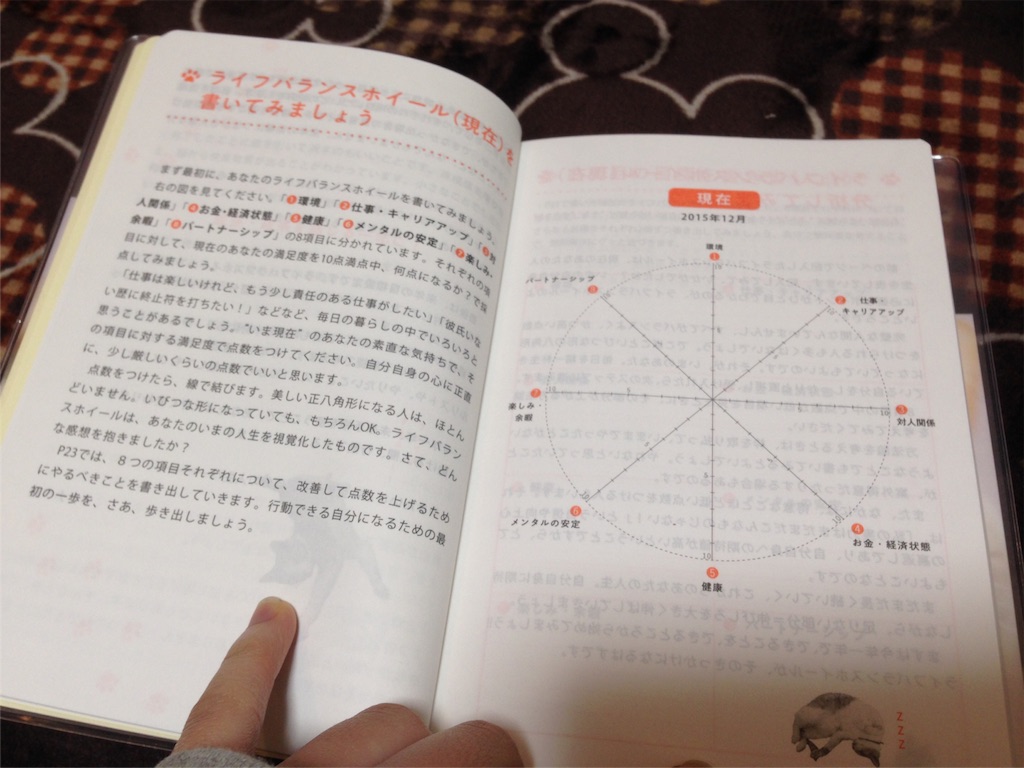 ライフバランスホイール(現在)を
書いてみましょう
まず最初に、あなたのライフバランスホイールを書いてみましょう。
右の図を見てください。「❶環境」「❷仕事・キャリアアップ」「❸対
人関係」「❹お金・経済状態」「❺健康」「❻メンタルの安定」「❼楽しみ・
余暇」「❽パートナーシップ」の8項目に分かれています。それぞれの項
目に対して、現在のあなたの満足度を10点満点中、何点になるか?で採
点してみましょう。
「仕事は楽しいけれど、もう少し責任のある仕事がしたい」「彼氏いな
い歴に終止符を打ちたい!」などなど、毎日の暮らしの中でいろいろと
思うことがあるでしょう。"いま現在"のあなたの素直な気持ちで、そ
の項目に対する満足度で点数をつけてください。自分自身の心に正直
に、少し厳しいくらいの点数でいいと思います。
点数をつけたら、線で結びます。美しい正八角形になる人は、ほとん
どいません。いびつな形になっていても、もちろんOK。ライフバラン
スホイールは、あなたのいまの人生を視覚化したものです。さて、どん
な感想を抱きましたか?
P23では、8つの項目それぞれについて、改善して点数を上げるため
にやるべきことを書き出していきます。行動できる自分になるための最
初の一歩を、さあ、歩き出しましょう。
現在
2015年12月
環境
❶
❷ 仕事・
キャリアアップ
❸
対人関係
❹
お金・経済状態
❺
健康
❻
メンタルの安定
❼
楽しみ・
余暇
パートナーシップ
❽
10
10
10
10
z
z
z